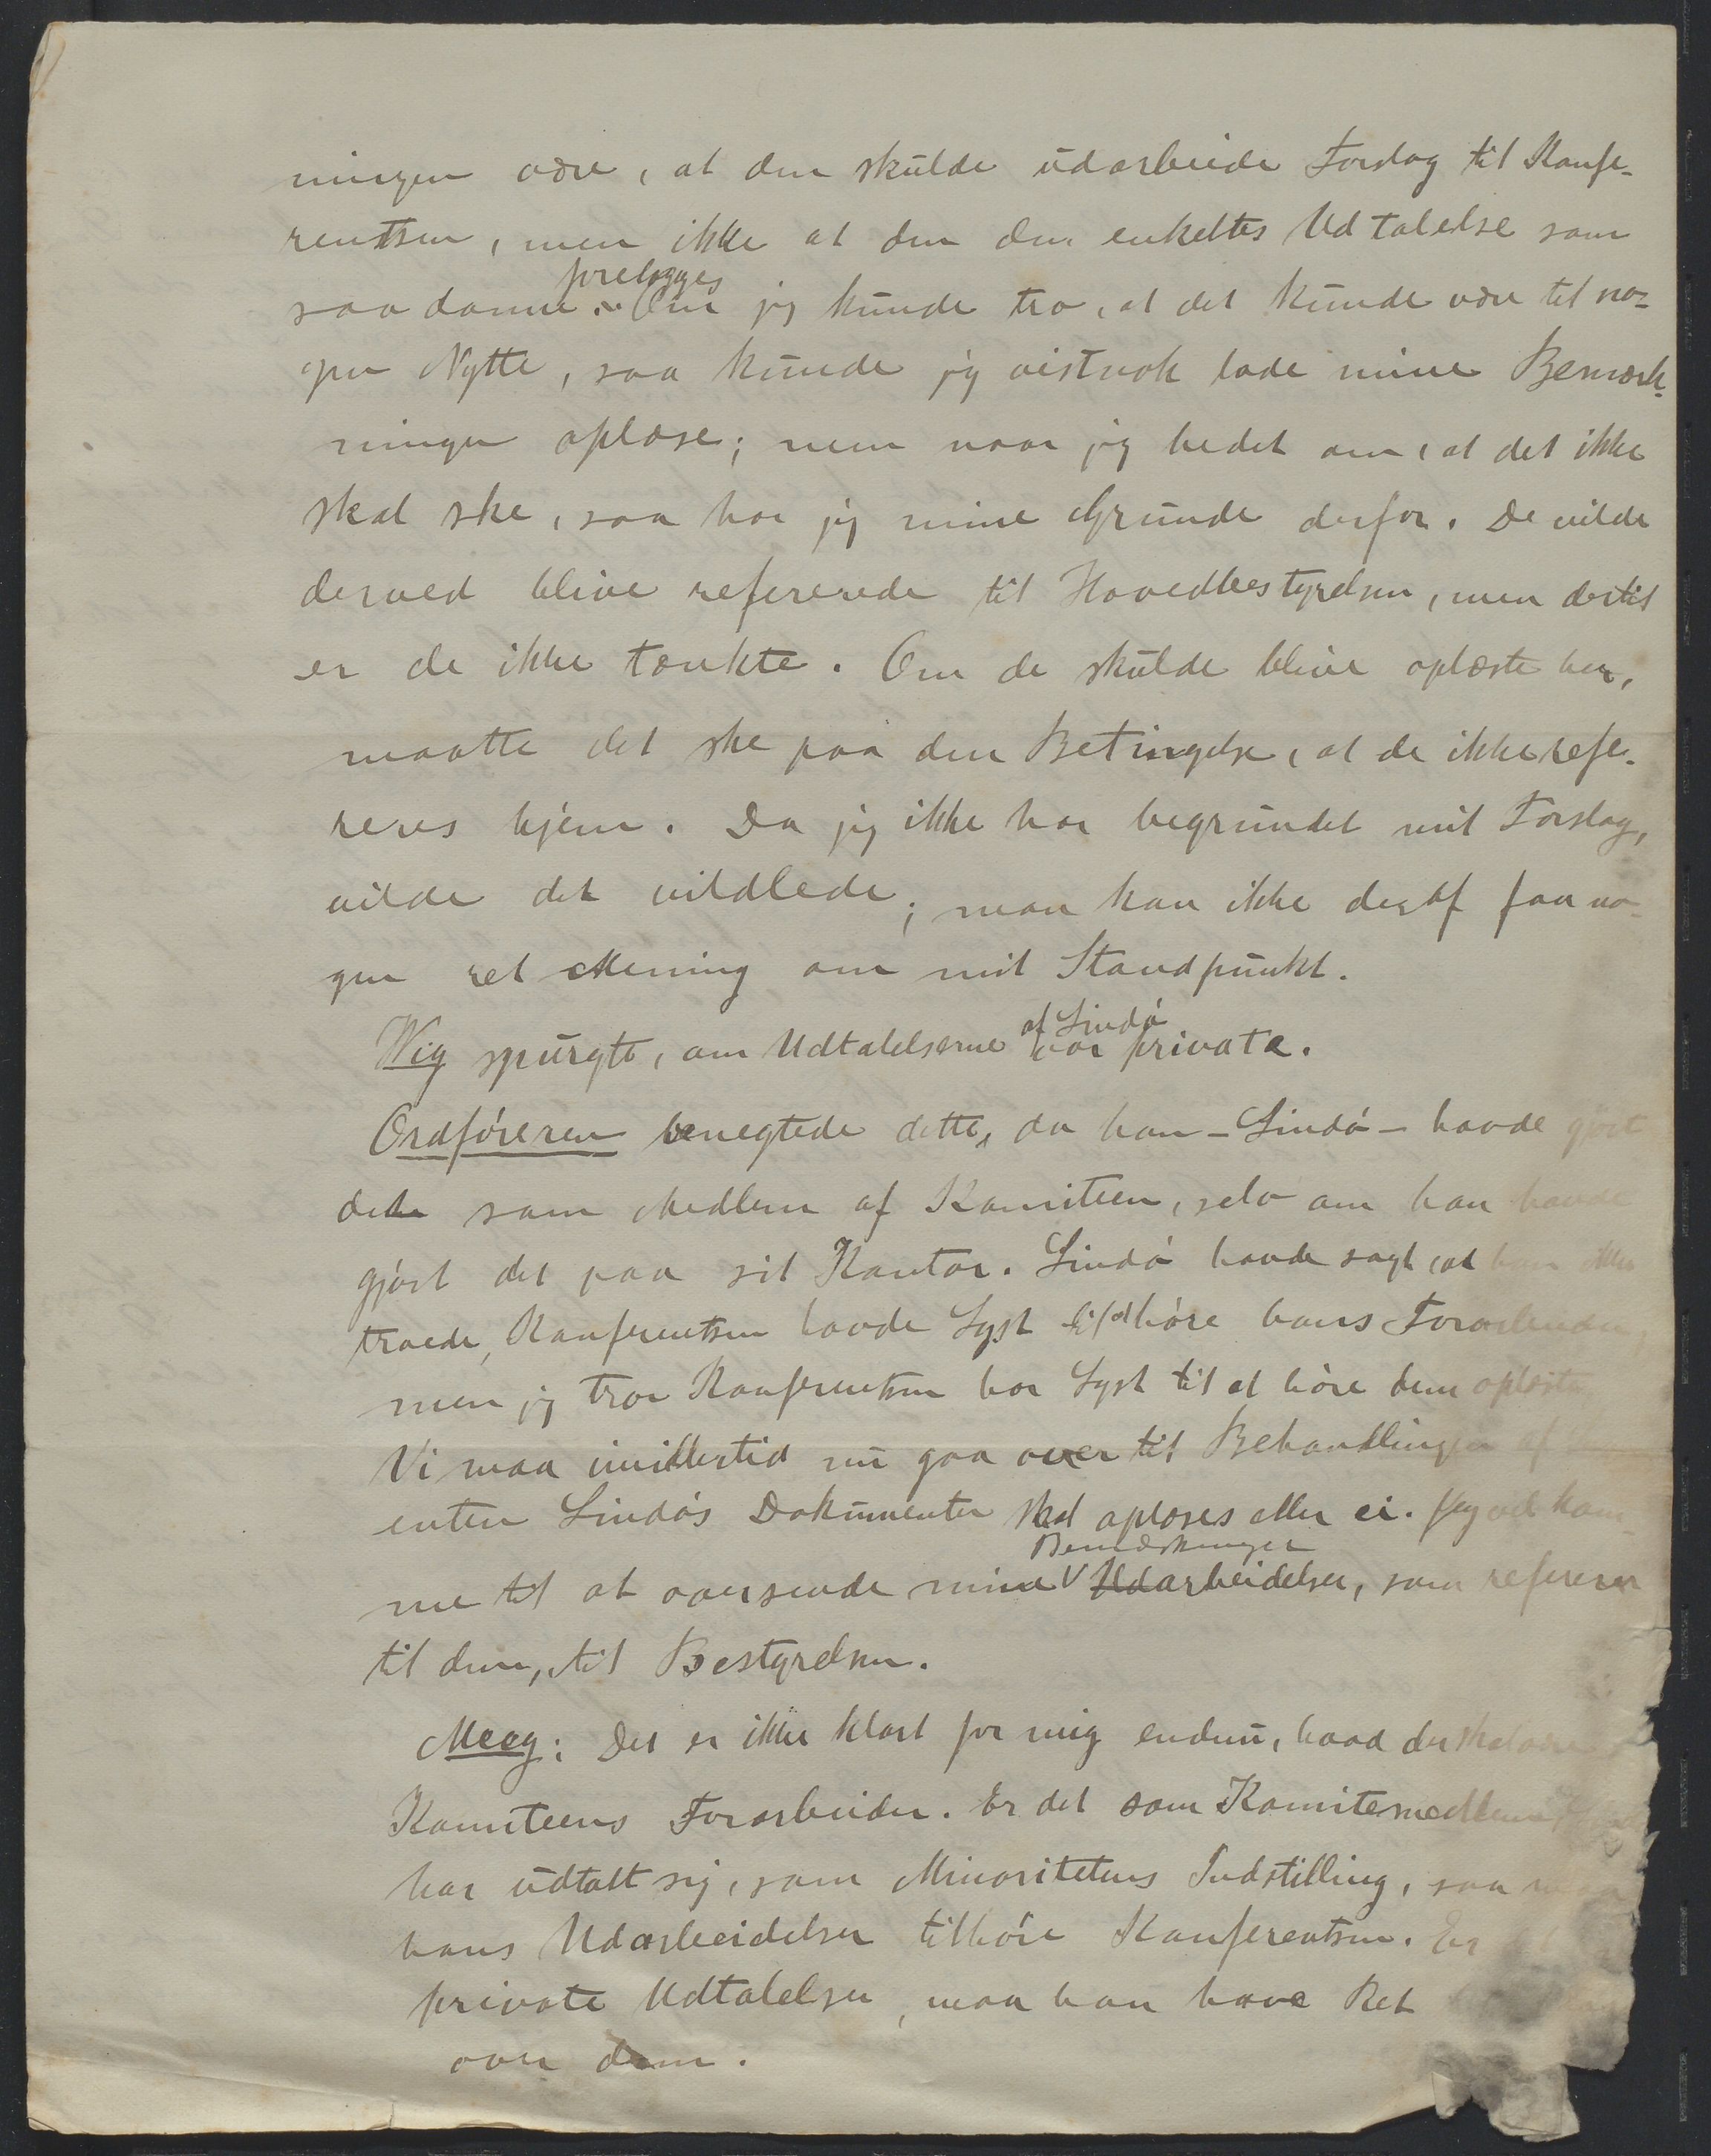 ningen være, at den skulde udarbeide Forslag til Konfe-
rentsen, men ikke at den den enkeltes Udtalelse som
forelægges
saadanne. Om jeg kunde tro, at det kunde være til no-
gen Nytte, saa kunde jeg vistnok lade mine Bemærk-
ninger oplæse; men naar jeg bedet om, at det ikke
skal ske, saa har jeg mine Grunde derfor. De vilde
derved blive refererede til Hovedbestyrelsen, men dertil
er de ikke tænkte. Om de skulde blive oplæste her,
maatte det ske paa den Betingelse, at de ikke refe-
reres hjem. Da jeg ikke har begrundet mit Forslag,
vilde det vildlede; man kan ikke deraf faa no-
gen ret Mening om mit Standpunkt.
af Lindø
Wig spurgte, om Udtalelserne var private.
Ordføreren benegtede dette, da han - Lindø - havde gjort
dette som Medlem af Komiteen, selv om han havde
gjørt det paa sit Kontor. Lindø havde sagt, at han ikke
troede, Konferentsen havde Lyst til at høre hans Forarbeider,
men jeg tror Konferentsen har Lyst til at høre dem oplæste
Vi maa imidlertid nu gaa over til Behandlingen af
enten Lindøs Dokumenter skal oplæses eller ei. Jeg vil kom-
Bemærkninger
me til at oversende mine Udarbeidelser, som referer
til dem, til Bestyrelsen.
Meeg: Det er ikke klart for mig endnu, hvad der skal være
Komiteens Forarbeider. Er det som Komitemedlem
har udtalt sig, som Minoritetens Indstilling, saa maa
hans Udarbeidelser tilhøre Konferentsen. Er
private Udtalelser, maa han have Ret
over dem.